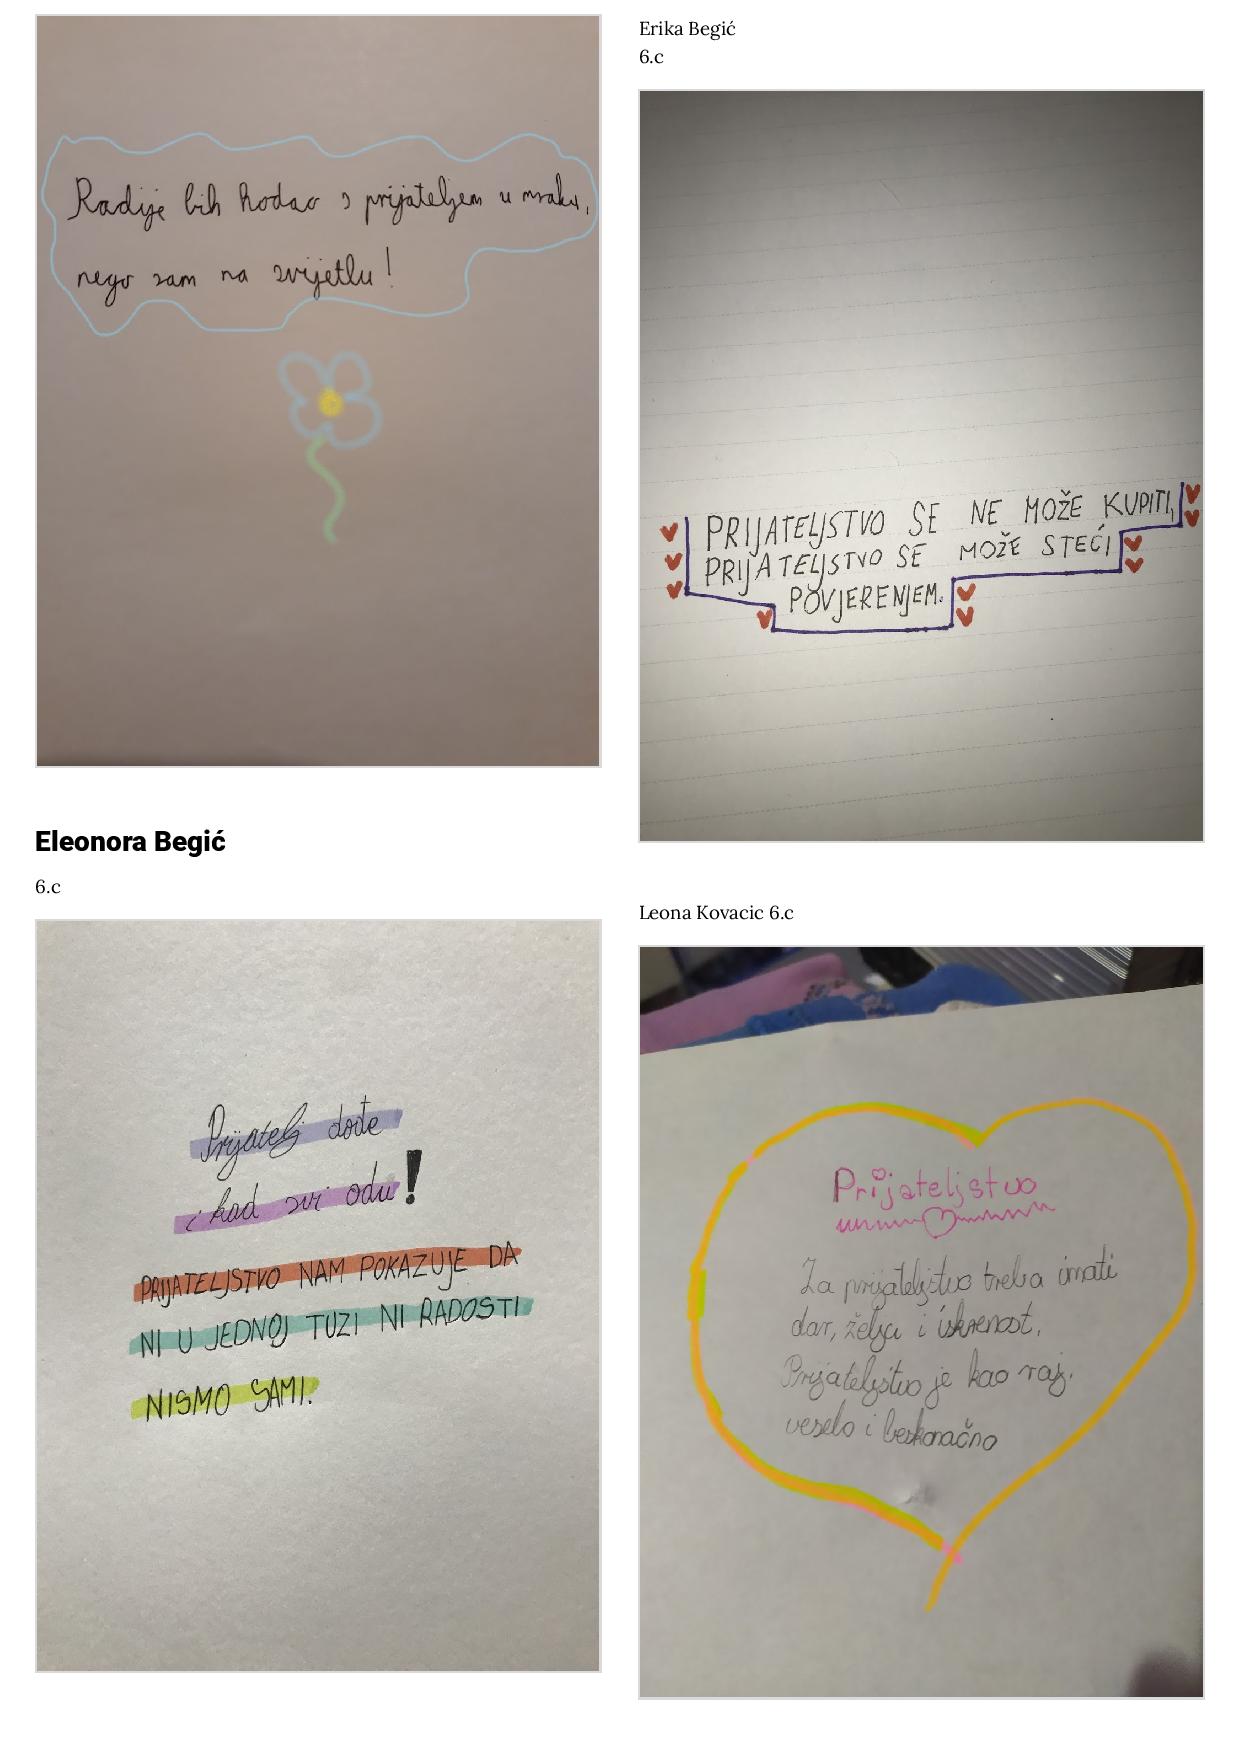 Radije bih hodao s prijateljem u mraku,
nego sam na svijetlu!
Eleonora Begić
6.c
Prijatelj dođe
i kad svi odu!
PRIJATELJSTVO NAM POKAZUJE DA
NI U JEDNOJ TUZI NI RADOSTI
NISMO SAMI.
Erika Begić
6.c
PRIJATELJSTVO SE NE MOŽE KUPITI,
PRIJATELJSTVO SE MOŽE STEĆI
POVJERENJEM.
Leona Kovacic 6.c
Prijateljstvo
Za prijateljstvo treba imati
dar, želja i iskrenost.
Prijateljstvo je kao raj.
veselo i beskonačno